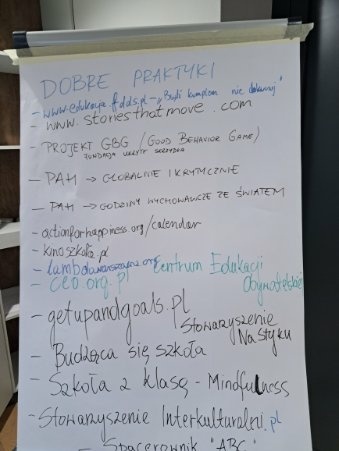 DOBRE PRAKTYKI
- www.edukacja.fdds.pl - „Bądź kumplem nie dokuczaj"
- www.storiesthatmove.com
- PROJEKT GBG (GOOD BEHAVIOR GAME)
FUNDACJA
- PAH → GLOBALNIE I KRYTYCZNIE
- PAH → GODZINY WYCHOWAWCZE ZE ŚWIATEM
- actionforhappiness.org/calendar
- kinoszkola.pl
- lambdawarszawa.org
- ceo.org.pl Centrum Edukacji
Obywatelskiej
- getupandgoals.pl
Stowarzyszenie
Na Styku
- Budząca się szkoła
- Szkoła z klasą - Mindfulness
- Stowarzyszenie Interkulturalni.pl
- Spacerownik "ABC"